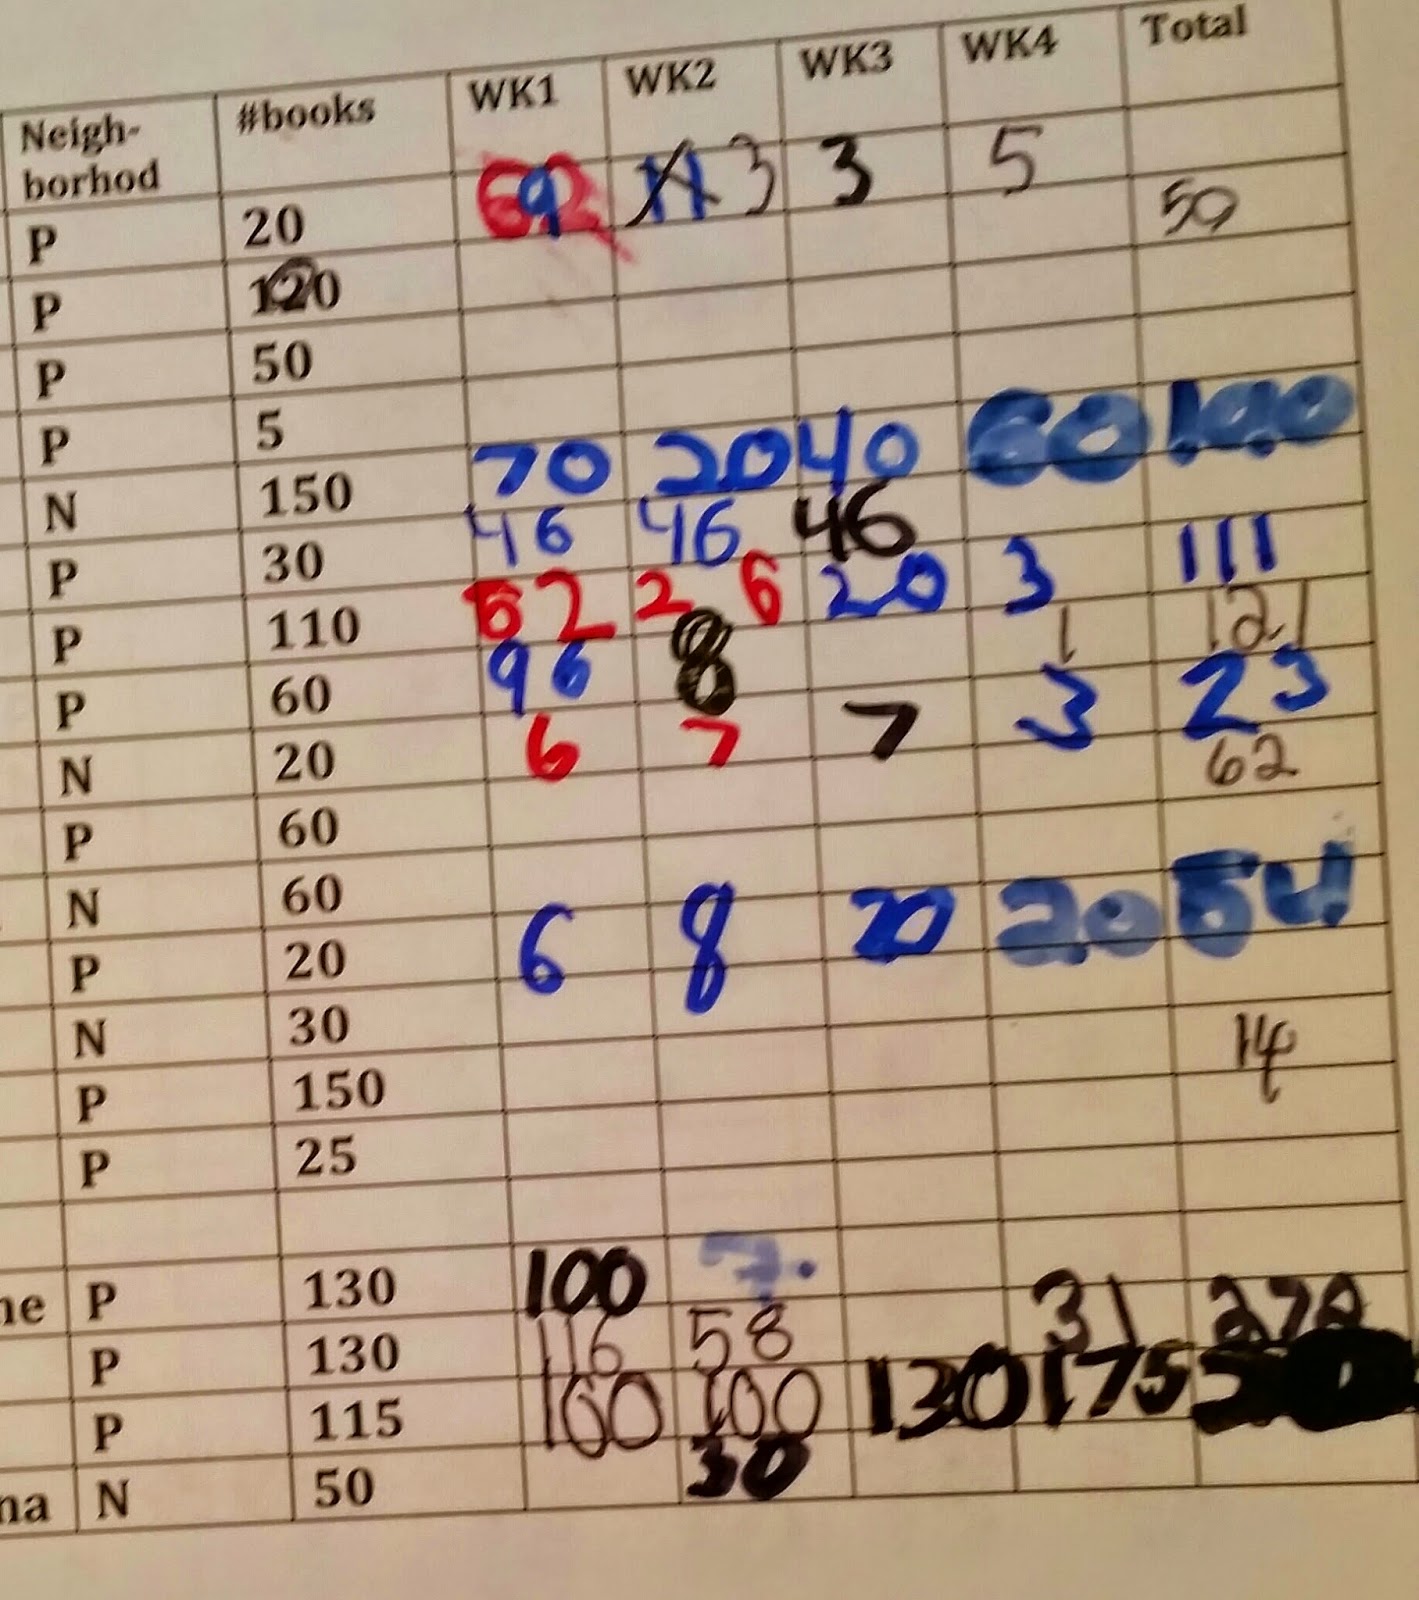 Neigh- #books WK1 WK2 WK3 WK4 Total
borhod
P 20 9 3 3 5 50
P 120
P 50
P 5
N 150 70 20 40 60 100
P 30 46 46 46
P 110 62 26 20 3 111
P 60 96 8 1 121
N 20 6 7 7 3 23
P 60 62
N 60
P 20 6 8 20 20 54
N 30
P 150 14
P 25
ne P 130 100 7.
P 130 116 58 31 272
P 115 100 100 130 175
na N 50 30